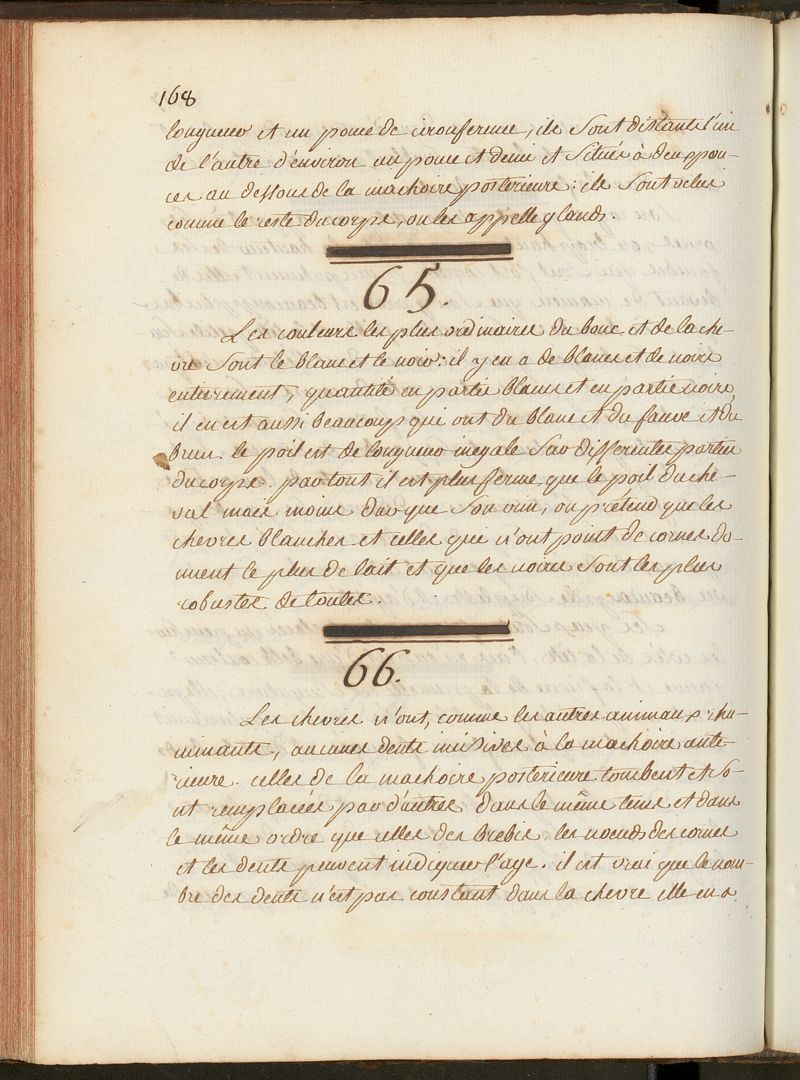 168
longueur et un pouce de circonference, ils sont distants l'un
de l'autre d'environ un pouce et demi et situés à deux pou-
ces au dessous de la machoire posterieure: ils sont velus
comme le reste du corps, on les appelle glands.
65.
Les couleurs les plus ordinaires du bouc et de la che-
vre sont le blanc et le noir: il y en a de blancs et de noirs
entierement, quantité en partie blancs et en partie noirs,
il en est aussi beaucoup qui ont du blanc et du fauve et du
brun. le poil est de longueur inegale sur differentes parties
du corps. partout il est plus ferme que le poil du che-
val mais moins dur que son crin, on prétend que les
chevres blanches et celles qui n'ont point de cornes do-
nnent le plus de lait et que les noires sont les plus
robustes de toutes.
66.
Les chevres n'ont, comme les autres animaux ru-
minants, aucunes dents incisives à la machoire anté-
rieure. celles de la machoire posterieure tombent et so-
nt remplacées par d'autres dans le même tems et dans
le même ordre que celles des brebis. les noeuds des cornes
et les dents peuvent indiquer l'age. il est vrai que le nom-
bre des dents n'est pas constant dans la chevre elle en a